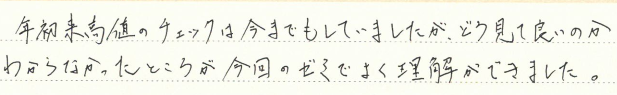 年初来高値のチェックは今までもしていましたが、どう見て良いのか
わからなかったところが今回のゼミでよく理解ができました。